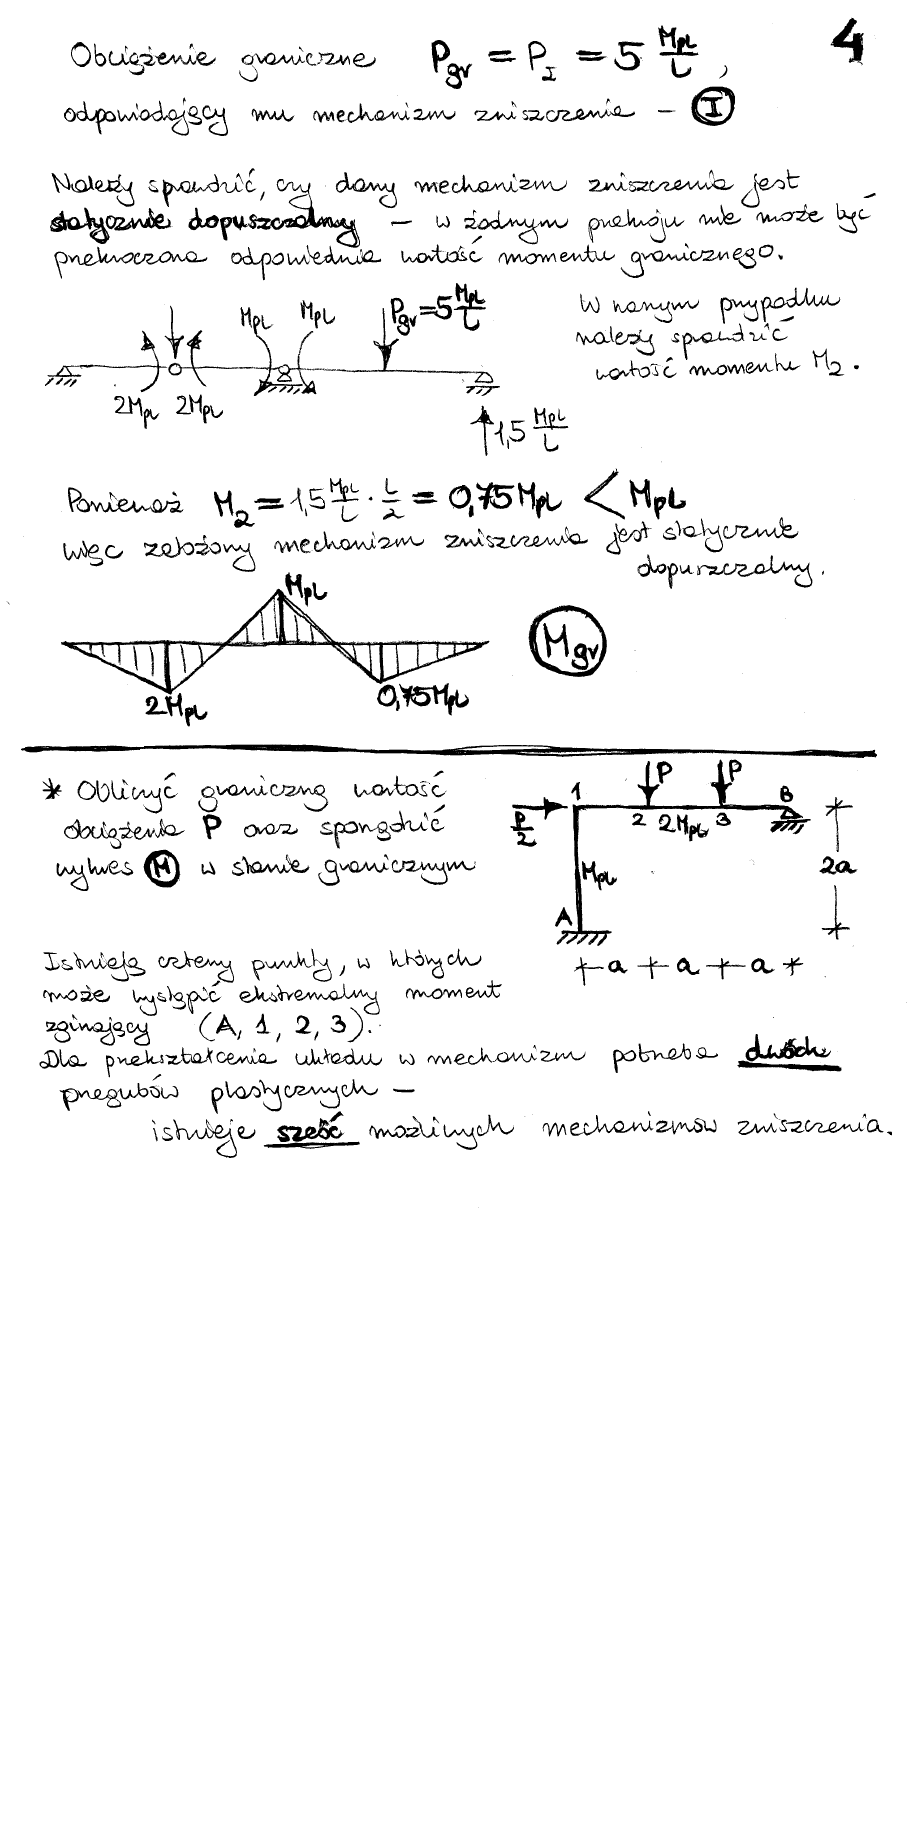 4
Obciążenie graniczne P_gr = P_I = 5 M_pL/L ,
odpowiadający mu mechanizm zniszczenia – I
Należy sprawdzić, czy dany mechanizm zniszczenia jest
statycznie dopuszczalny – w żadnym przekroju nie może być
przekroczona odpowiednia wartość momentu granicznego.
M_pL M_pL P_gr = 5 M_pL/L
2M_pL 2M_pL
1,5 M_pL/L
W naszym przypadku
należy sprawdzić
wartość momentu M_2.
Ponieważ M_2 = 1,5 M_pL/L · L/2 = 0,75 M_pL < M_pL
więc założony mechanizm zniszczenia jest statycznie
dopuszczalny.
M_pL
M_gr
2M_pL 0,75M_pL
* Obliczyć graniczną wartość
obciążenia P oraz sporządzić
wykres M w stanie granicznym
P P
1 B
P/2 2 2M_pL 3
M_pL 2a
A
a a a
Istnieją cztery punkty, w których
może wystąpić ekstremalny moment
zginający (A, 1, 2, 3).
Dla przekształcenia układu w mechanizm potrzeba dwóch
przegubów plastycznych –
istnieje sześć możliwych mechanizmów zniszczenia.